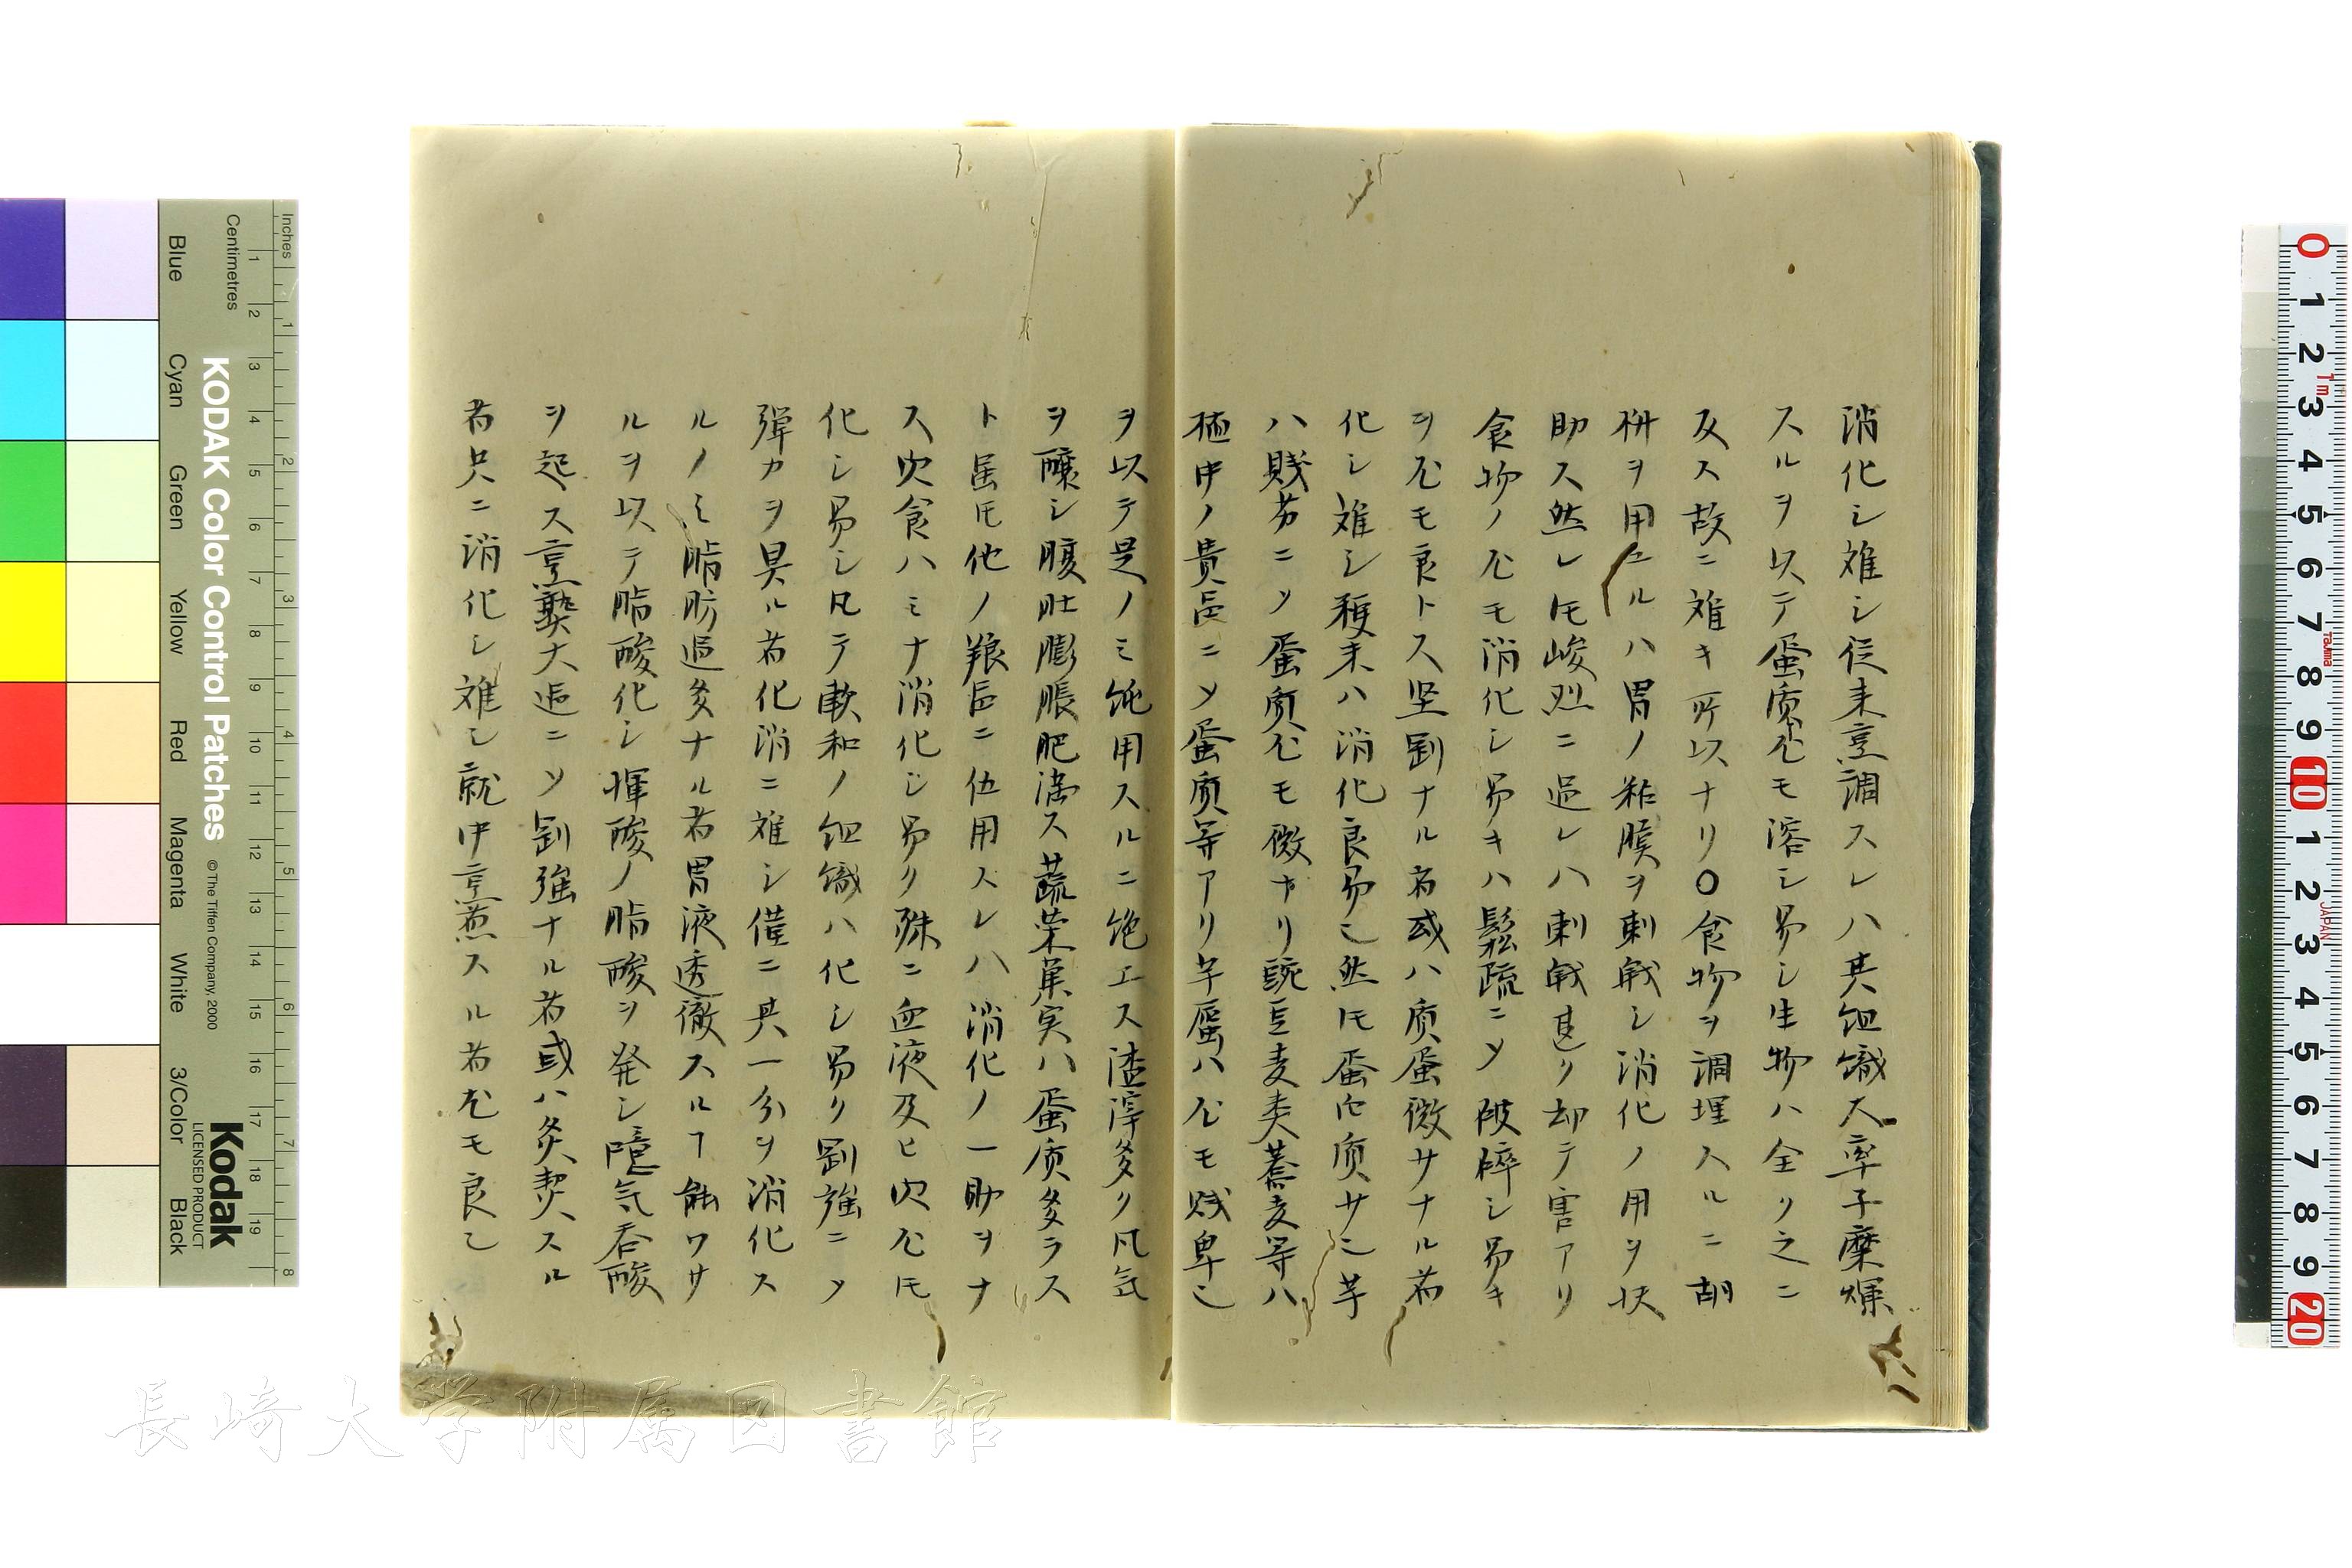 消化シ難シ従来烹調スレハ其組織大率子糜爛
スルヲ以テ蛋质尤モ溶シ易シ生物ハ全ク之ニ
反ス故ニ難キ所以ナリ〇食物ヲ調理スルニ胡
椒ヲ用ユルハ胃ノ粘膜ヲ刺戟シ消化ノ用ヲ扶
助ス然レ𪜈峻烈ニ過レハ刺戟甚ク却テ害アリ
食物ノ尤モ消化シ易キハ鬆疏ニ乄破碎シ易キ
ヲ尤モ良トス坚剛ナル者或ハ质蛋微サナル者
化シ難シ稷末ハ消化良易也然𪜈蛋白质サ也芋
ハ賎劣ニ乄蛋质尤モ微ナリ豌豆麦麦蕎麦等ハ
植中ノ貴品ニ乄蛋质等アリ芋羉ハ尤モ賎卑也
ヲ以テ是ノミ飽用スルニ絶エス渣滓多ク凡気
ヲ醸シ腹肚膨脹肥満ス蔬菜菓実ハ蛋质多ラス
ト虽𪜈他ノ粮品ニ伍用スレハ消化ノ一助ヲナ
ス肉食ハミナ消化シ易ク殊ニ血液及ヒ肉尤𪜈
化シ易シ凡テ軟和ノ組織ハ化シ易ク剛強ニ乄
弾力ヲ具ル者化消ニ難シ僅ニ其一分ヲ消化ス
ルノミ脂肪過多ナル者胃液透徹スルヿ能ワサ
ルヲ以テ脂酸化シ揮酸ノ脂酸ヲ発シ噫気吞酸
ヲ起ス烹熟大過ニ乄剛強ナル者或ハ炙煿スル
者共ニ消化シ難シ就中烹煮スル者尤モ良也
Inches
Centimetres
KODAK Color Control Patches
© The Tiffen Company, 2000
Kodak
LICENSED PRODUCT
Blue
Cyan
Green
Yellow
Red
Magenta
White
3/Color
Black
長崎大学附属図書館